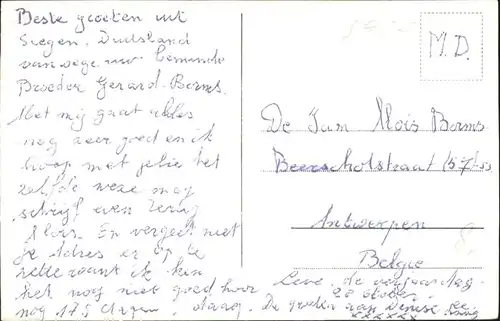 Beste groeten uit
Siegen. Duitsland
van wege uw
Broeder Gerard. Borms.
Met mij gaat alles
nog zeer goed en ik
hoop met jelie het
zelfde weze mag
schrijf even terug
Alois. En vergeet niet
je adres er op te
zette want ik ken
het nog niet goed hoor
nog 175 dagen, daag. De groeten aan Denise
M.D.
De Fam Alois Borms
Beerschotstraat
Antwerpen
Belgie
Leve de verjaardag
20 oktober
xxxxxx